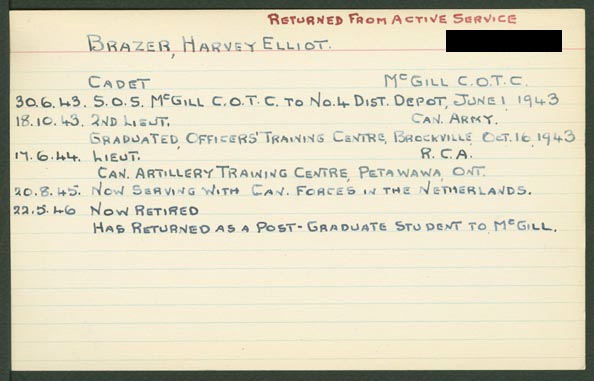 RETURNED FROM ACTIVE SERVICE
BRAZER, HARVEY ELLIOT.
CADET McGILL C.O.T.C.
30.6.43. S.O.S. McGILL C.O.T.C. TO NO.4 DIST. DEPOT, JUNE 1, 1943
18.10.43. 2ND LIEUT. CAN. ARMY.
GRADUATED, OFFICERS' TRAINING CENTRE, BROCKVILLE, OCT. 16, 1943
17.6.44. LIEUT. R.C.A.
CAN. ARTILLERY TRAINING CENTRE, PETAWAWA, ONT.
20.8.45. NOW SERVING WITH CAN. FORCES IN THE NETHERLANDS.
22.5.46 NOW RETIRED
HAS RETURNED AS A POST-GRADUATE STUDENT TO McGILL.